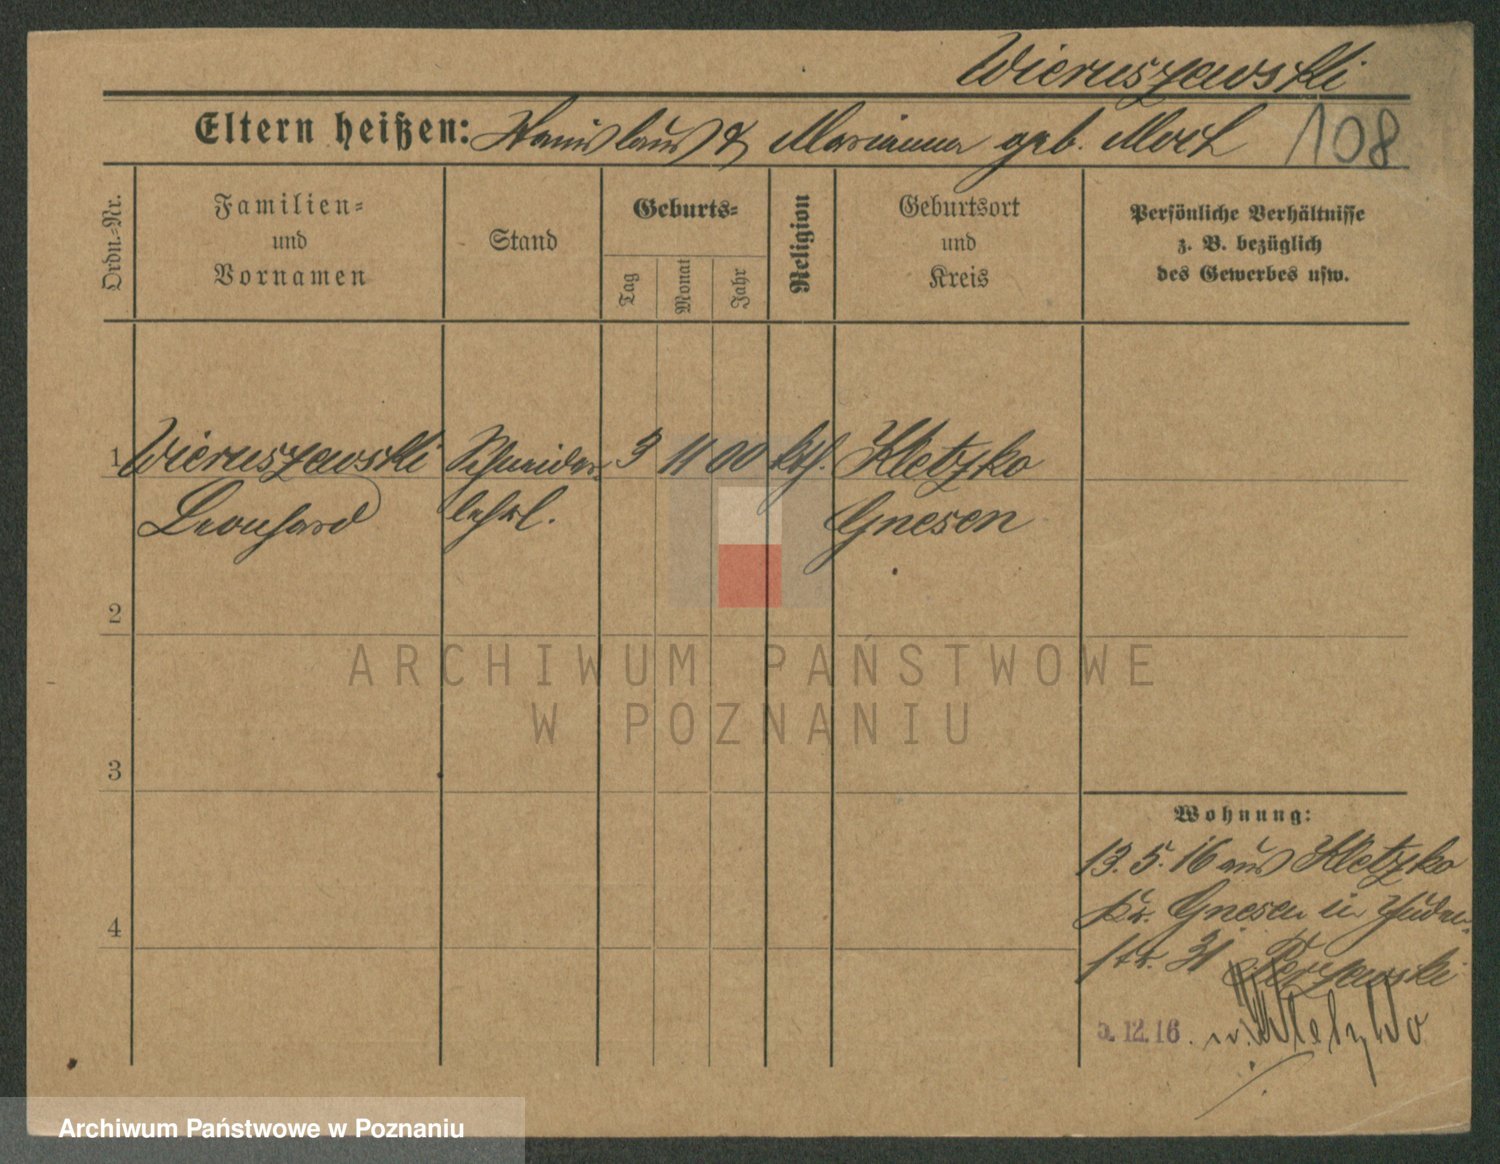 Wieruszewski
Eltern heißen: Stanislaus & Marianna geb. Moch 108
Ordn.-Nr.
Familien-
und
Vornamen
Stand
Geburts-
Tag
Monat
Jahr
Religion
Geburtsort
und
Kreis
Persönliche Verhältnisse
z. B. bezüglich
des Gewerbes usw.
1 Wieruszewski Schneider- 3 11 00 kth. Kletzko
Leonhard lehrl. Gnesen
2
ARCHIWUM PAŃSTWOWE
W POZNANIU
3
4
Wohnung:
13. 5. 16 aus Kletzko
Kr. Gnesen in Juden-
str. 31
5.12.16. n. Kletzko
Archiwum Państwowe w Poznaniu